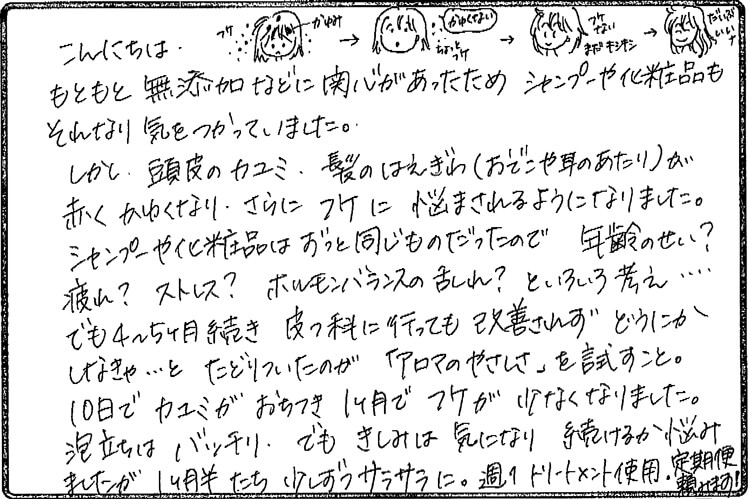 フケ かゆみ → かゆくない ちょっとフケ → フケない まだキシキシ → だいぶいいナ
こんにちは。
もともと 無添加などに関心があったため シャンプーや化粧品も
それなり 気をつかっていました。
しかし、頭皮のカユミ、髪のはえぎわ(おでこや耳のあたり)が
赤く かゆくなり、さらに フケに 悩まされるようになりました。
シャンプーや化粧品は ずっと同じものだったので 年齢のせい?
疲れ? ストレス? ホルモンバランスの乱れ? といろいろ考え……
でも4〜5ヶ月続き 皮フ科に行っても 改善されず どうにか
しなきゃ…と たどりついたのが 「アロマのやさしさ」を試すこと。
10日で カユミが おちつき 1ヶ月で フケが 少なくなりました。
泡立ちは バッチリ、でも きしみは 気になり 続けるか悩み
ましたが 1ヶ月半たち 少しずつサラサラに。週1 トリートメント使用。定期便
頼みます!